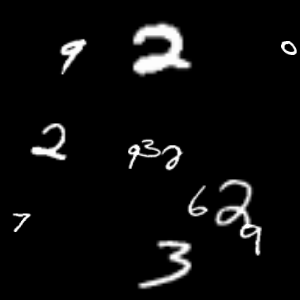 9 2 0
2 9 3 2
7 6 2 9
3